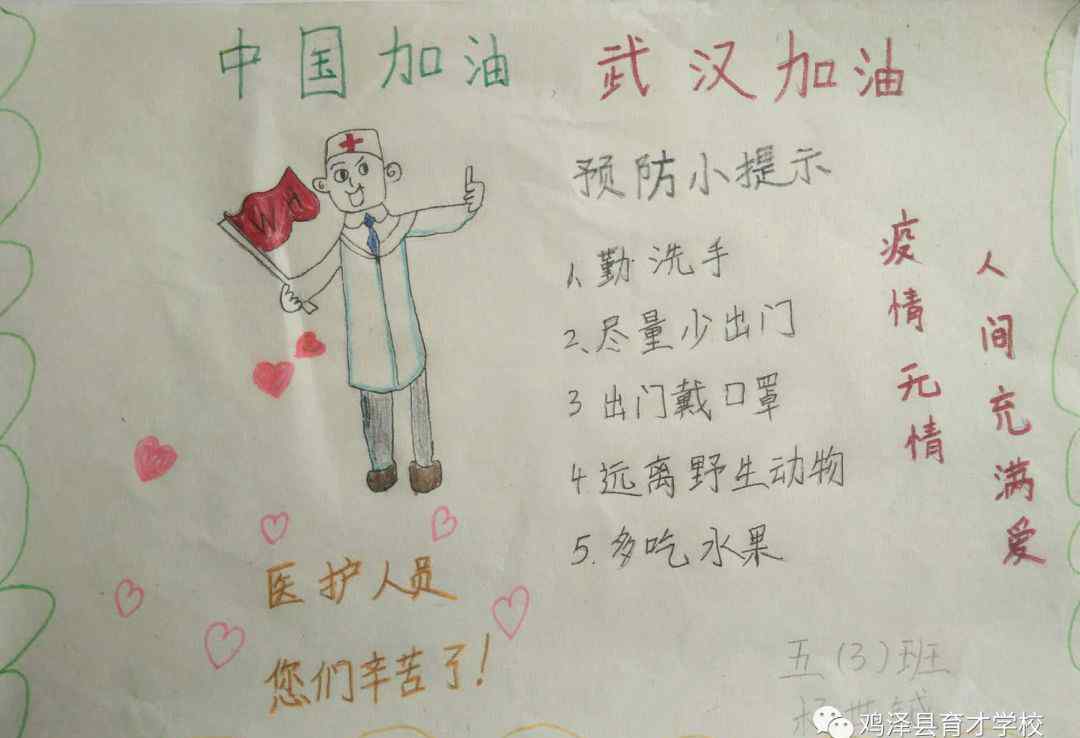 中国加油 武汉加油
WH
预防小提示
1、勤洗手
2、尽量少出门
3 出门戴口罩
4 远离野生动物
5. 多吃水果
疫情无情
人间充满爱
医护人员
您们辛苦了!
五(3)班
鸡泽县育才学校